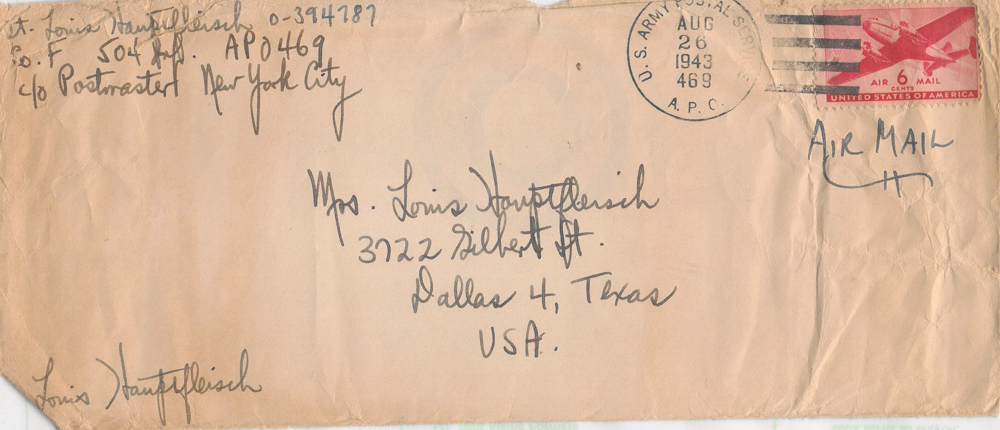 Lt. Louis Hauptfleisch O-394787
Co. F 504 Inf. APO 469
c/o Postmaster New York City
U.S. ARMY POSTAL SERVICE
AUG
26
1943
469
A.P.O.
AIR 6 MAIL
CENTS
UNITED STATES OF AMERICA
AIR MAIL
Mrs. Louis Hauptfleisch
3722 Gilbert St.
Dallas 4, Texas
USA.
Louis Hauptfleisch